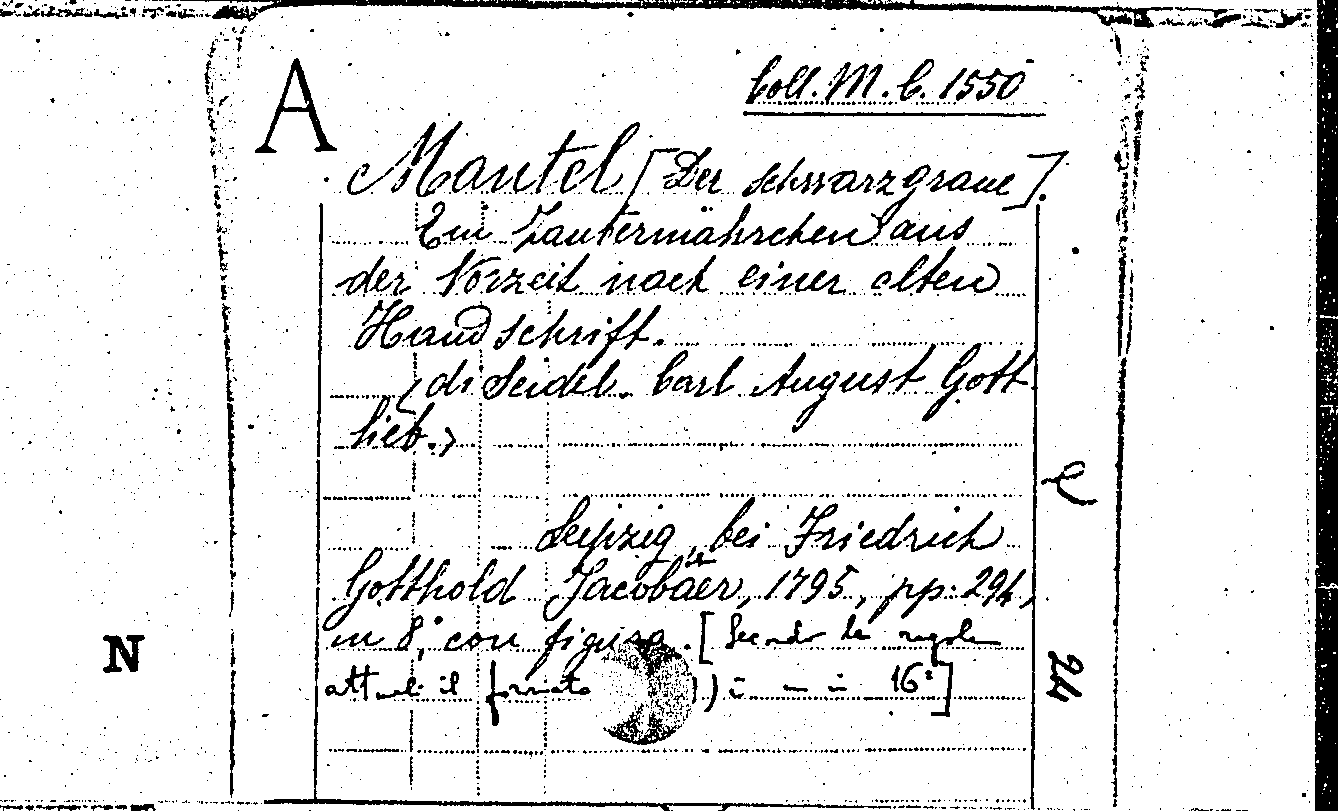 A
Coll. M. C. 1550
Mantel [Der schwarzgraue].
Ein Zaubermährchen aus
der Vorzeit nach einer alten
Handschrift.
(di Seidel. Carl August Gott
lieb.)
Leipzig, bei Friedrich
Gotthold Jacobäer, 1795, pp. 294,
in 8°, con figura. [Secondo le regole
attuali il formato in 16°]
N
24